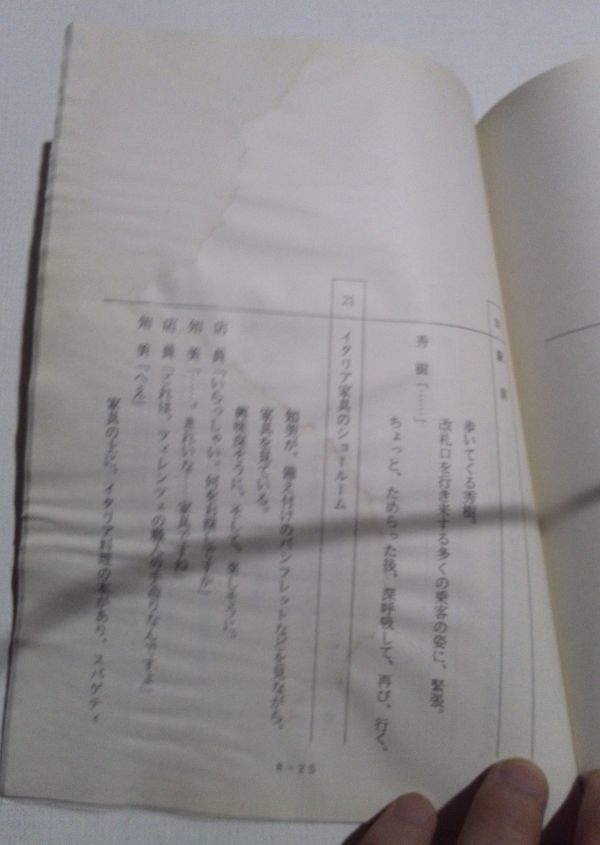 歩いてくる秀樹。
改札口を行き来する多くの乗客の姿に、緊張。
秀樹「……」
ちょっと、ためらった後、深呼吸して、再び、行く。
21 イタリア家具のショールーム
知美が、備え付けのパンフレットなどを見ながら、
家具を見ている。
興味深そうに。そして、楽しそうに。
店員「いらっしゃい。何をお探しですか」
知美「……。きれいな……家具ですね」
店員「これは、フィレンツェの職人の手造りなんですよ」
知美「へえ」
家具の上に、イタリア料理の本があり、スパゲティ
8-25